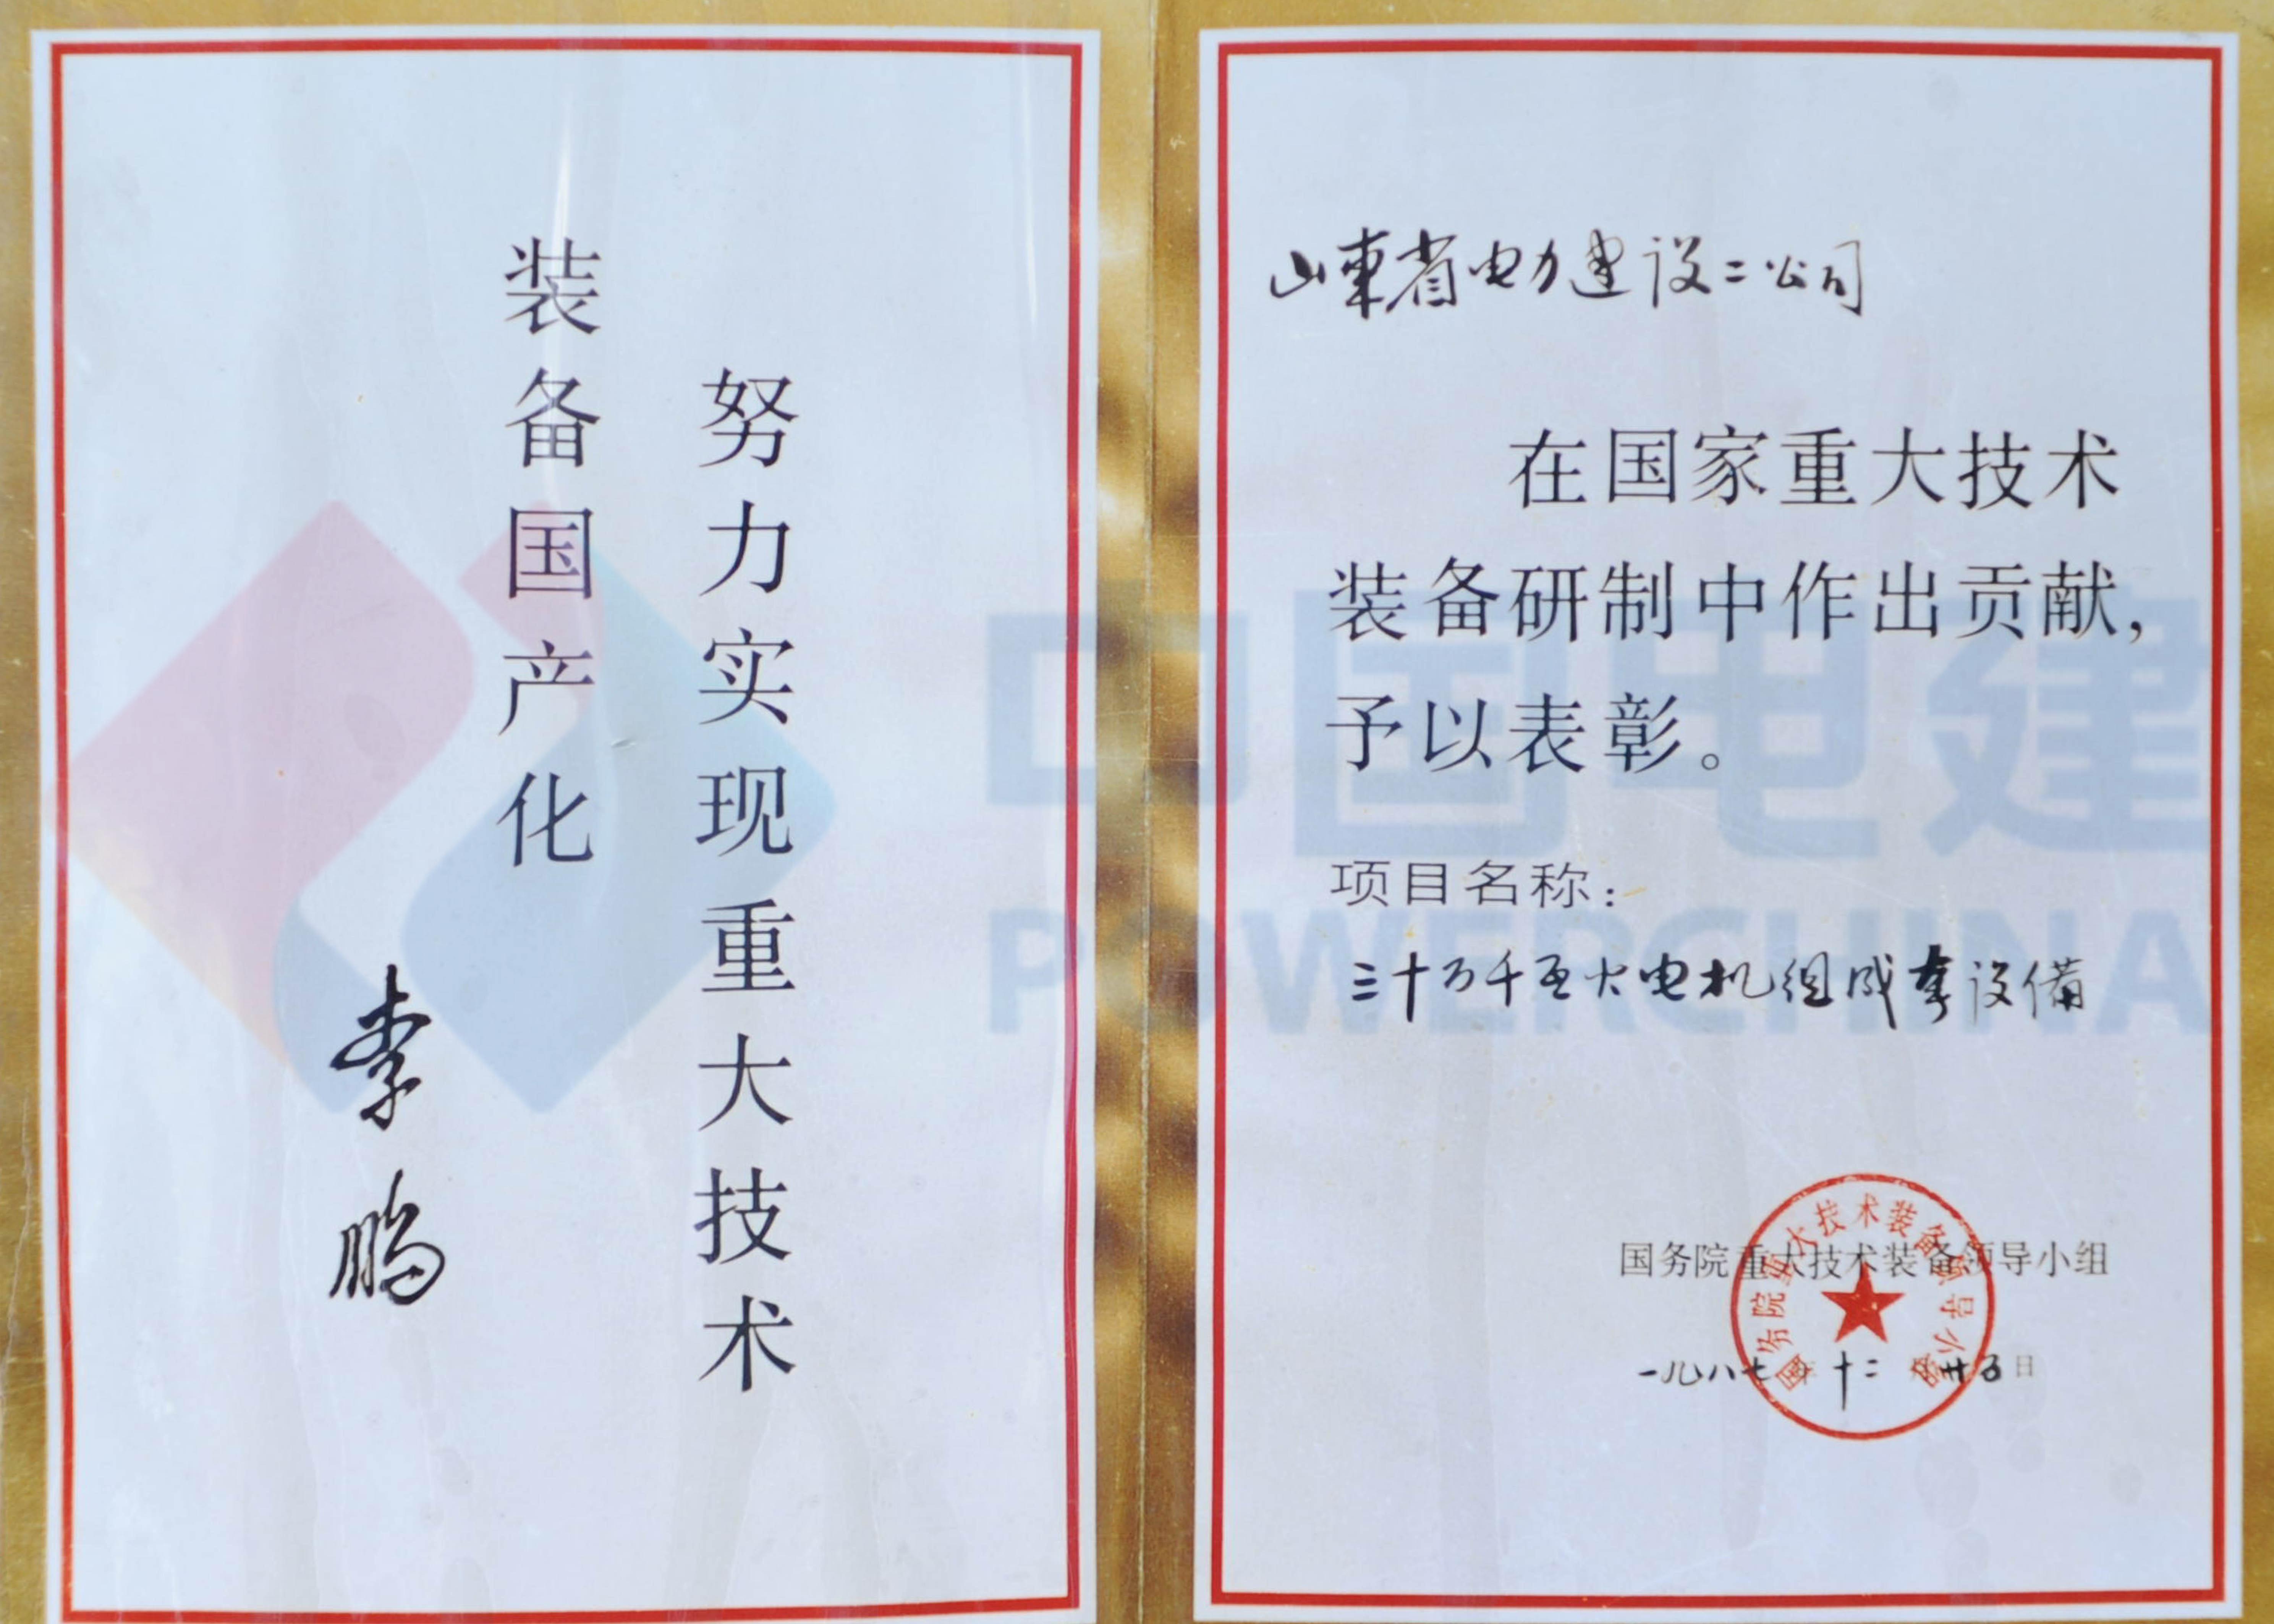 努力实现重大技术
装备国产化
李鹏
山東省电力建设二公司
在国家重大技术
装备研制中作出贡献，
予以表彰。
项目名称：
三十万千瓦火电机组成套设備
国务院重大技术装备领导小组
一九八七年十二月廿五日
国务院重大技术装备领导小组
中国电建
POWERCHINA